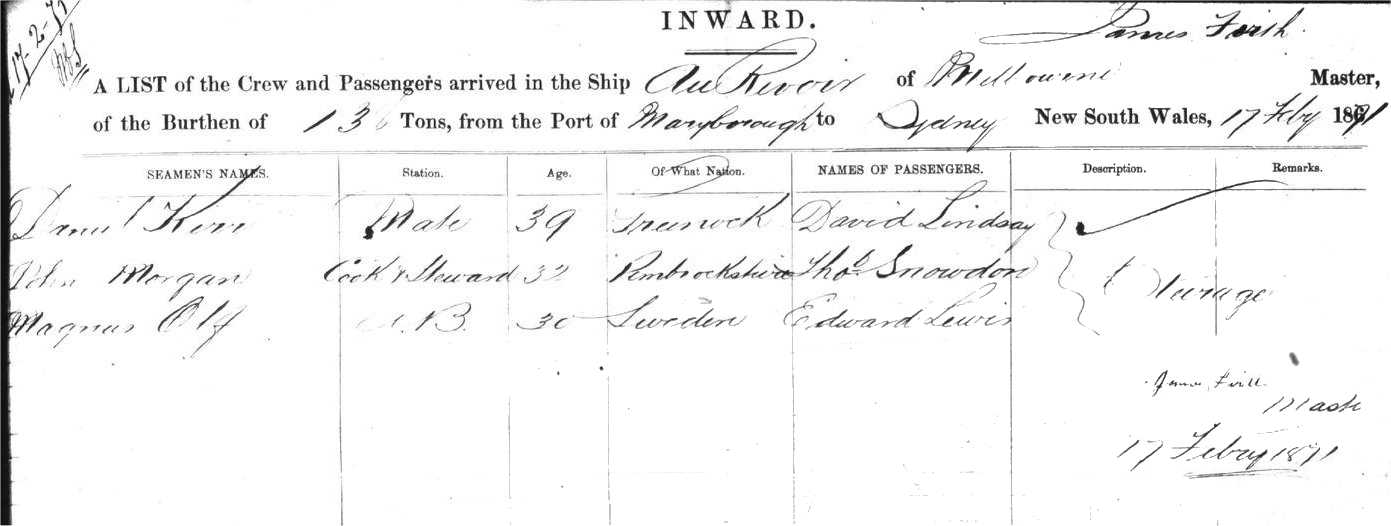 17-2-71
INWARD.
James Firth
A LIST of the Crew and Passengers arrived in the Ship Au Revoir of Melbourne Master,
of the Burthen of 136 Tons, from the Port of Maryborough to Sydney New South Wales, 17 Feby 1871
SEAMEN'S NAMES. Station. Age. Of What Nation. NAMES OF PASSENGERS. Description. Remarks.
Daniel Kerr Mate 39 Greenock David Lindsay
John Morgan Cook & Steward 32 Pembrockshire Thos Snowdon Steerage
Magnus Olf A.B. 30 Sweden Edward Lewis
James Firth
Master
17 Febry 1871